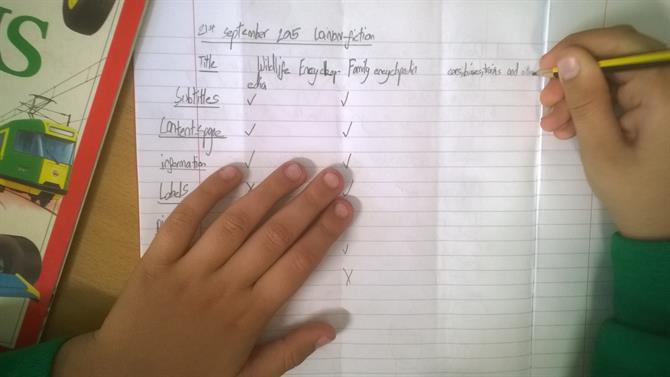 21st september 2015 Lo:non-fiction
Title Wildlife Encyclop- Family encyclopedia cars, bikes, trains and
edia
Subtitles ✓ ✓
Contents page ✓ ✓
information ✓ ✓
Labels X ✓
✓
X